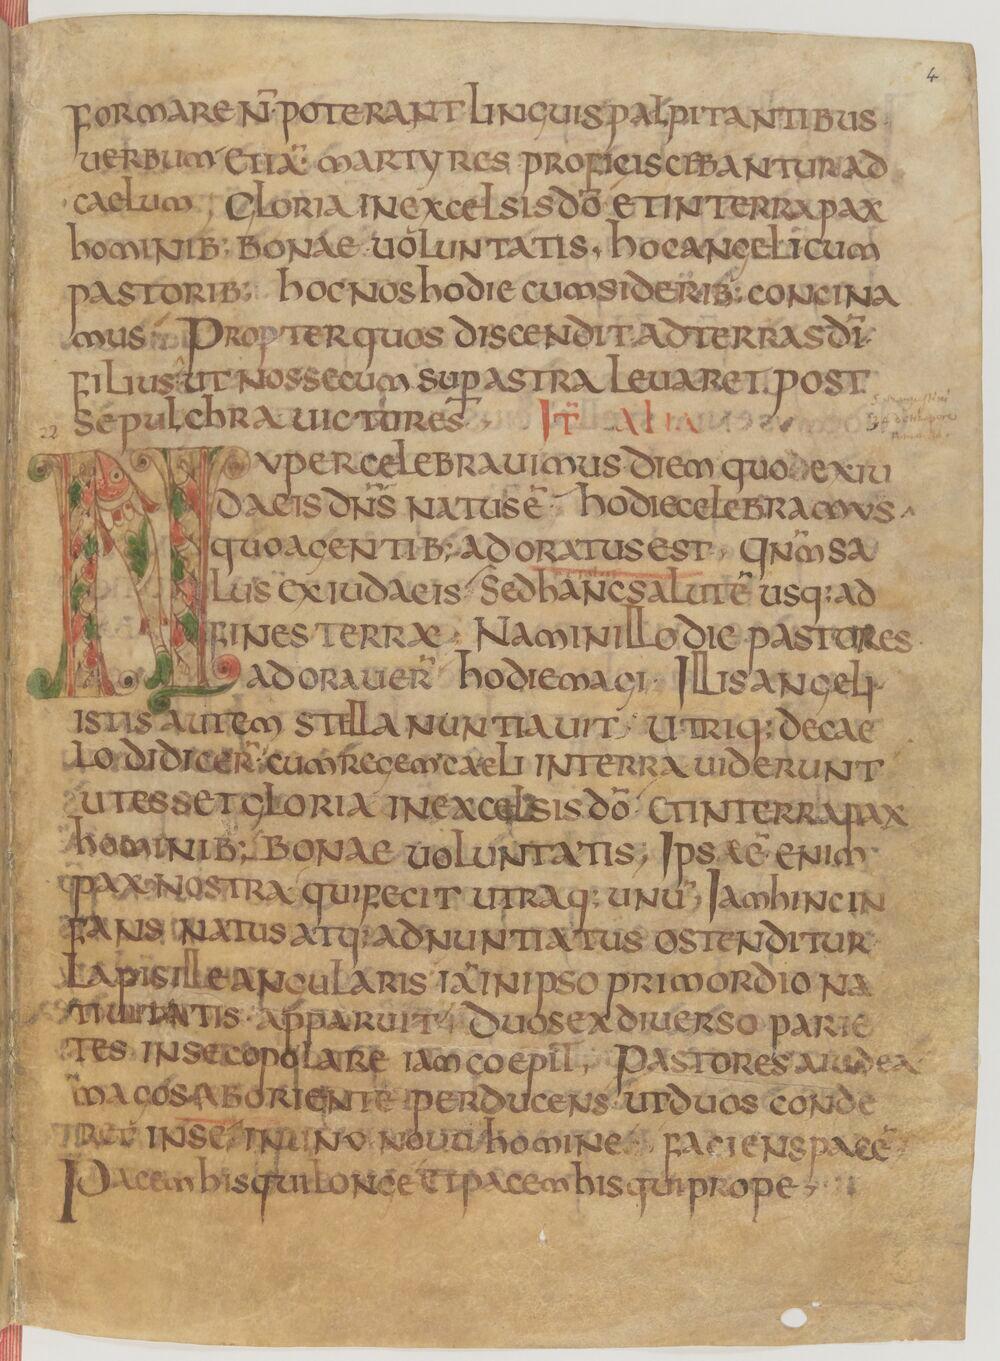 4
FORMARE N̄ POTERANT LINGUIS PALPITANTIBUS
UERBUM ETIĀ MARTYRES PROFICISCEBANTUR AD
CAELUM, GLORIA IN EXCELSIS DŌ ET IN TERRA PAX
HOMINIB; BONAE UOLUNTATIS, HOC ANGELICUM
PASTORIB; HOC NOS HODIE CUM SIDERIB; CONCINA
MUS PROPTER QUOS DISCENDIT AD TERRAS DĪ
FILIUS UT NOS SECUM SUP̄ ASTRA LEUARET POST
SEPULCHRA UICTORES, IT̄ ALIA
22
NUPER CELEBRAUIMUS DIEM QUO EX IU
DAEIS DN̄S NATUS Ē HODIE CELEBRAMUS
QUO A GENTIB; ADORATUS EST, QN̄M SA
LUS EX IUDAEIS SED HANC SALUTĒ USQ; AD
FINES TERRÆ NAM IN ILLO DIE PASTORES
ADORAUER̄ HODIE MAGI ILLIS ANGELI
ISTIS AUTEM STELLA NUNTIAUIT UTRIQ; DE CAE
LO DIDICER̄ CUM REGEM CAELI IN TERRA UIDERUNT
UT ESSET GLORIA IN EXCELSIS DŌ ET IN TERRA PAX
HOMINIB; BONAE UOLUNTATIS, IPSAE Ē ENIM
PAX NOSTRA QUI FECIT UTRAQ; UNŪ, IAM HINC IN
FANS NATUS ATQ; ADNUNTIATUS OSTENDITUR
LAPIS ILLE ANGULARIS IĀ IN IPSO PRIMORDIO NA
TIUITATIS APPARUIT, DUOS EX DIUERSO PARIE
TES IN SE COPOLARE IAM COEPIT, PASTORES A IUDEA
MAGOS AB ORIENTE PERDUCENS UT DUOS CONDE
RET IN SE IN UNO NOUŪ HOMINE FACIENS PACĒ
PACEM HIS QUI LONGE ET PACEM HIS QUI PROPE